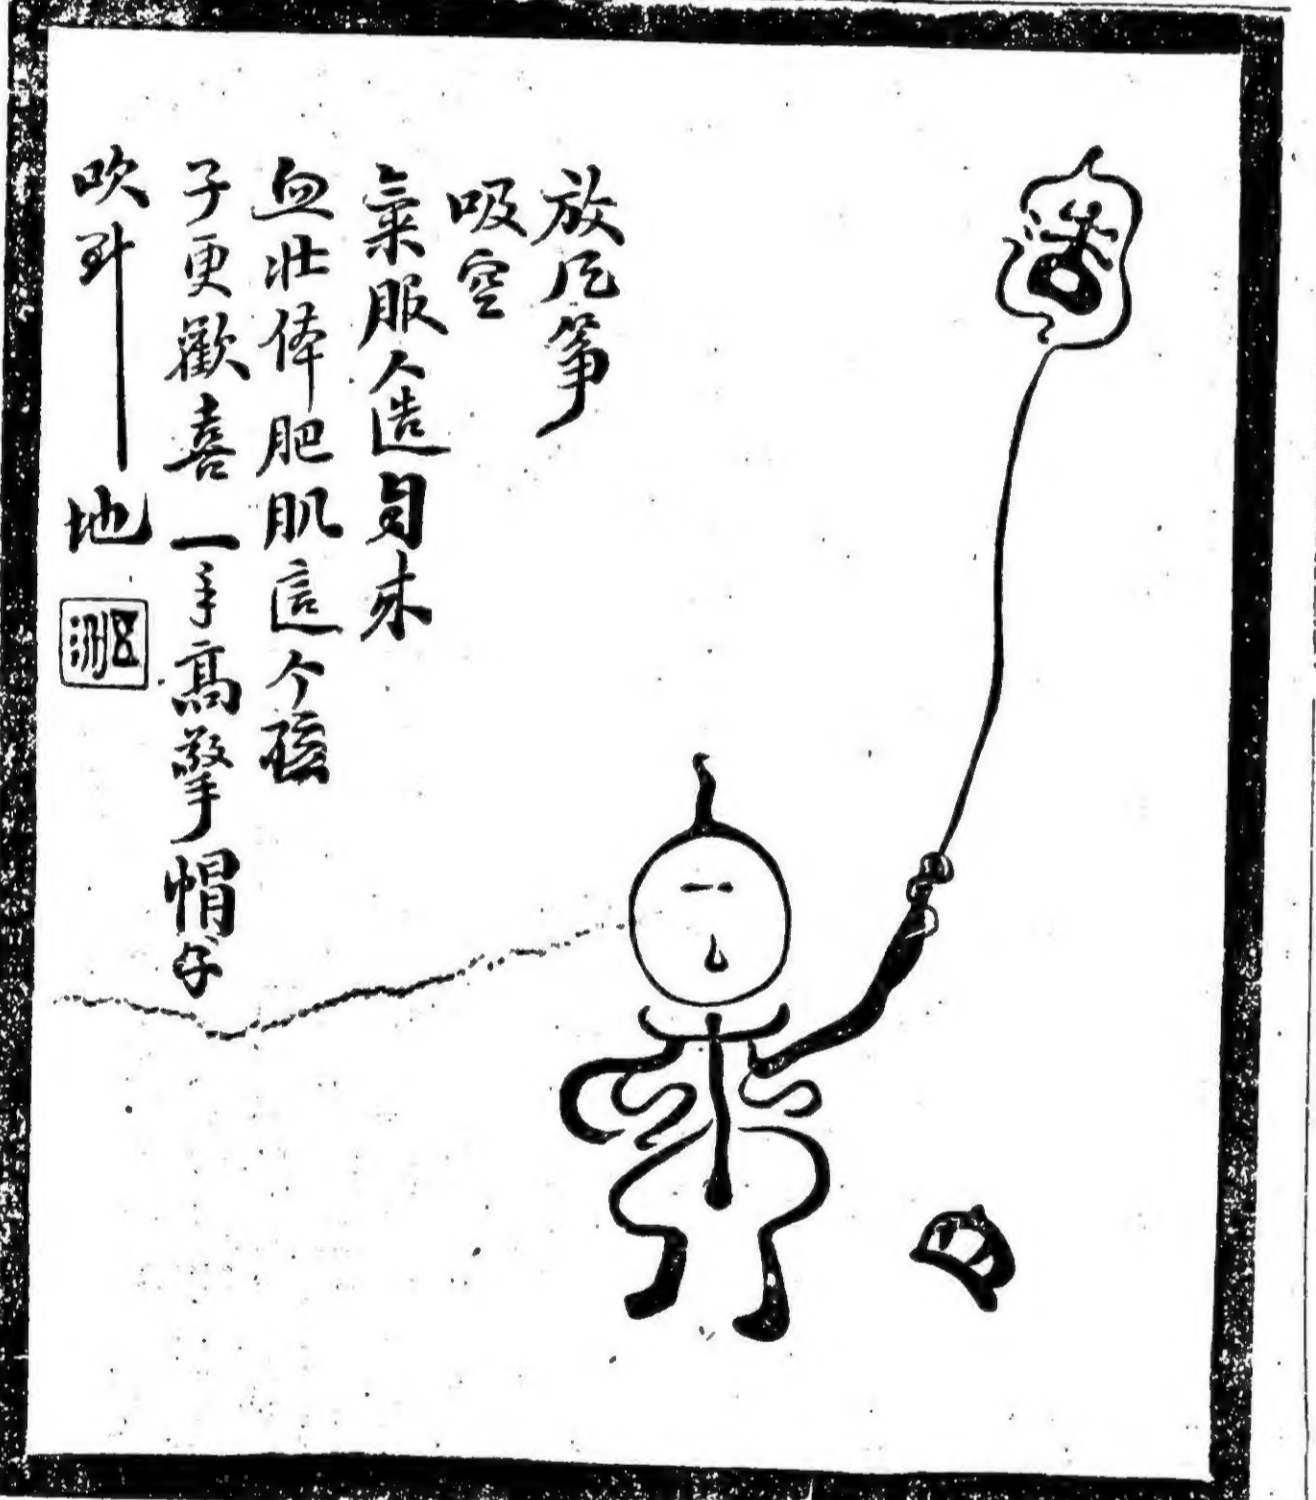 放风筝
吸空
氣服人造自來
血壯体肥肌這个孩
子更歡喜一手高擎帽子
吹到地
五洲